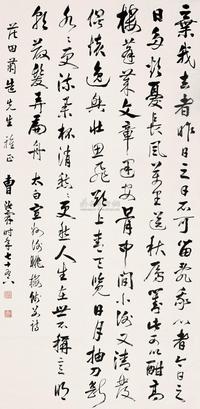 棄我去者昨日之日不可留亂我心者今日之
日多煩憂長風萬里送秋雁對此可以酣高
樓蓬萊文章建安骨中間小謝又清發
俱懷逸興壯思飛欲上青天覽日月抽刀斷
水水更流舉杯消愁愁更愁人生在世不稱意明
朝散髮弄扁舟 太白宣州謝朓樓餞別詩
田 先生雅正 曹汝霖時年七十八